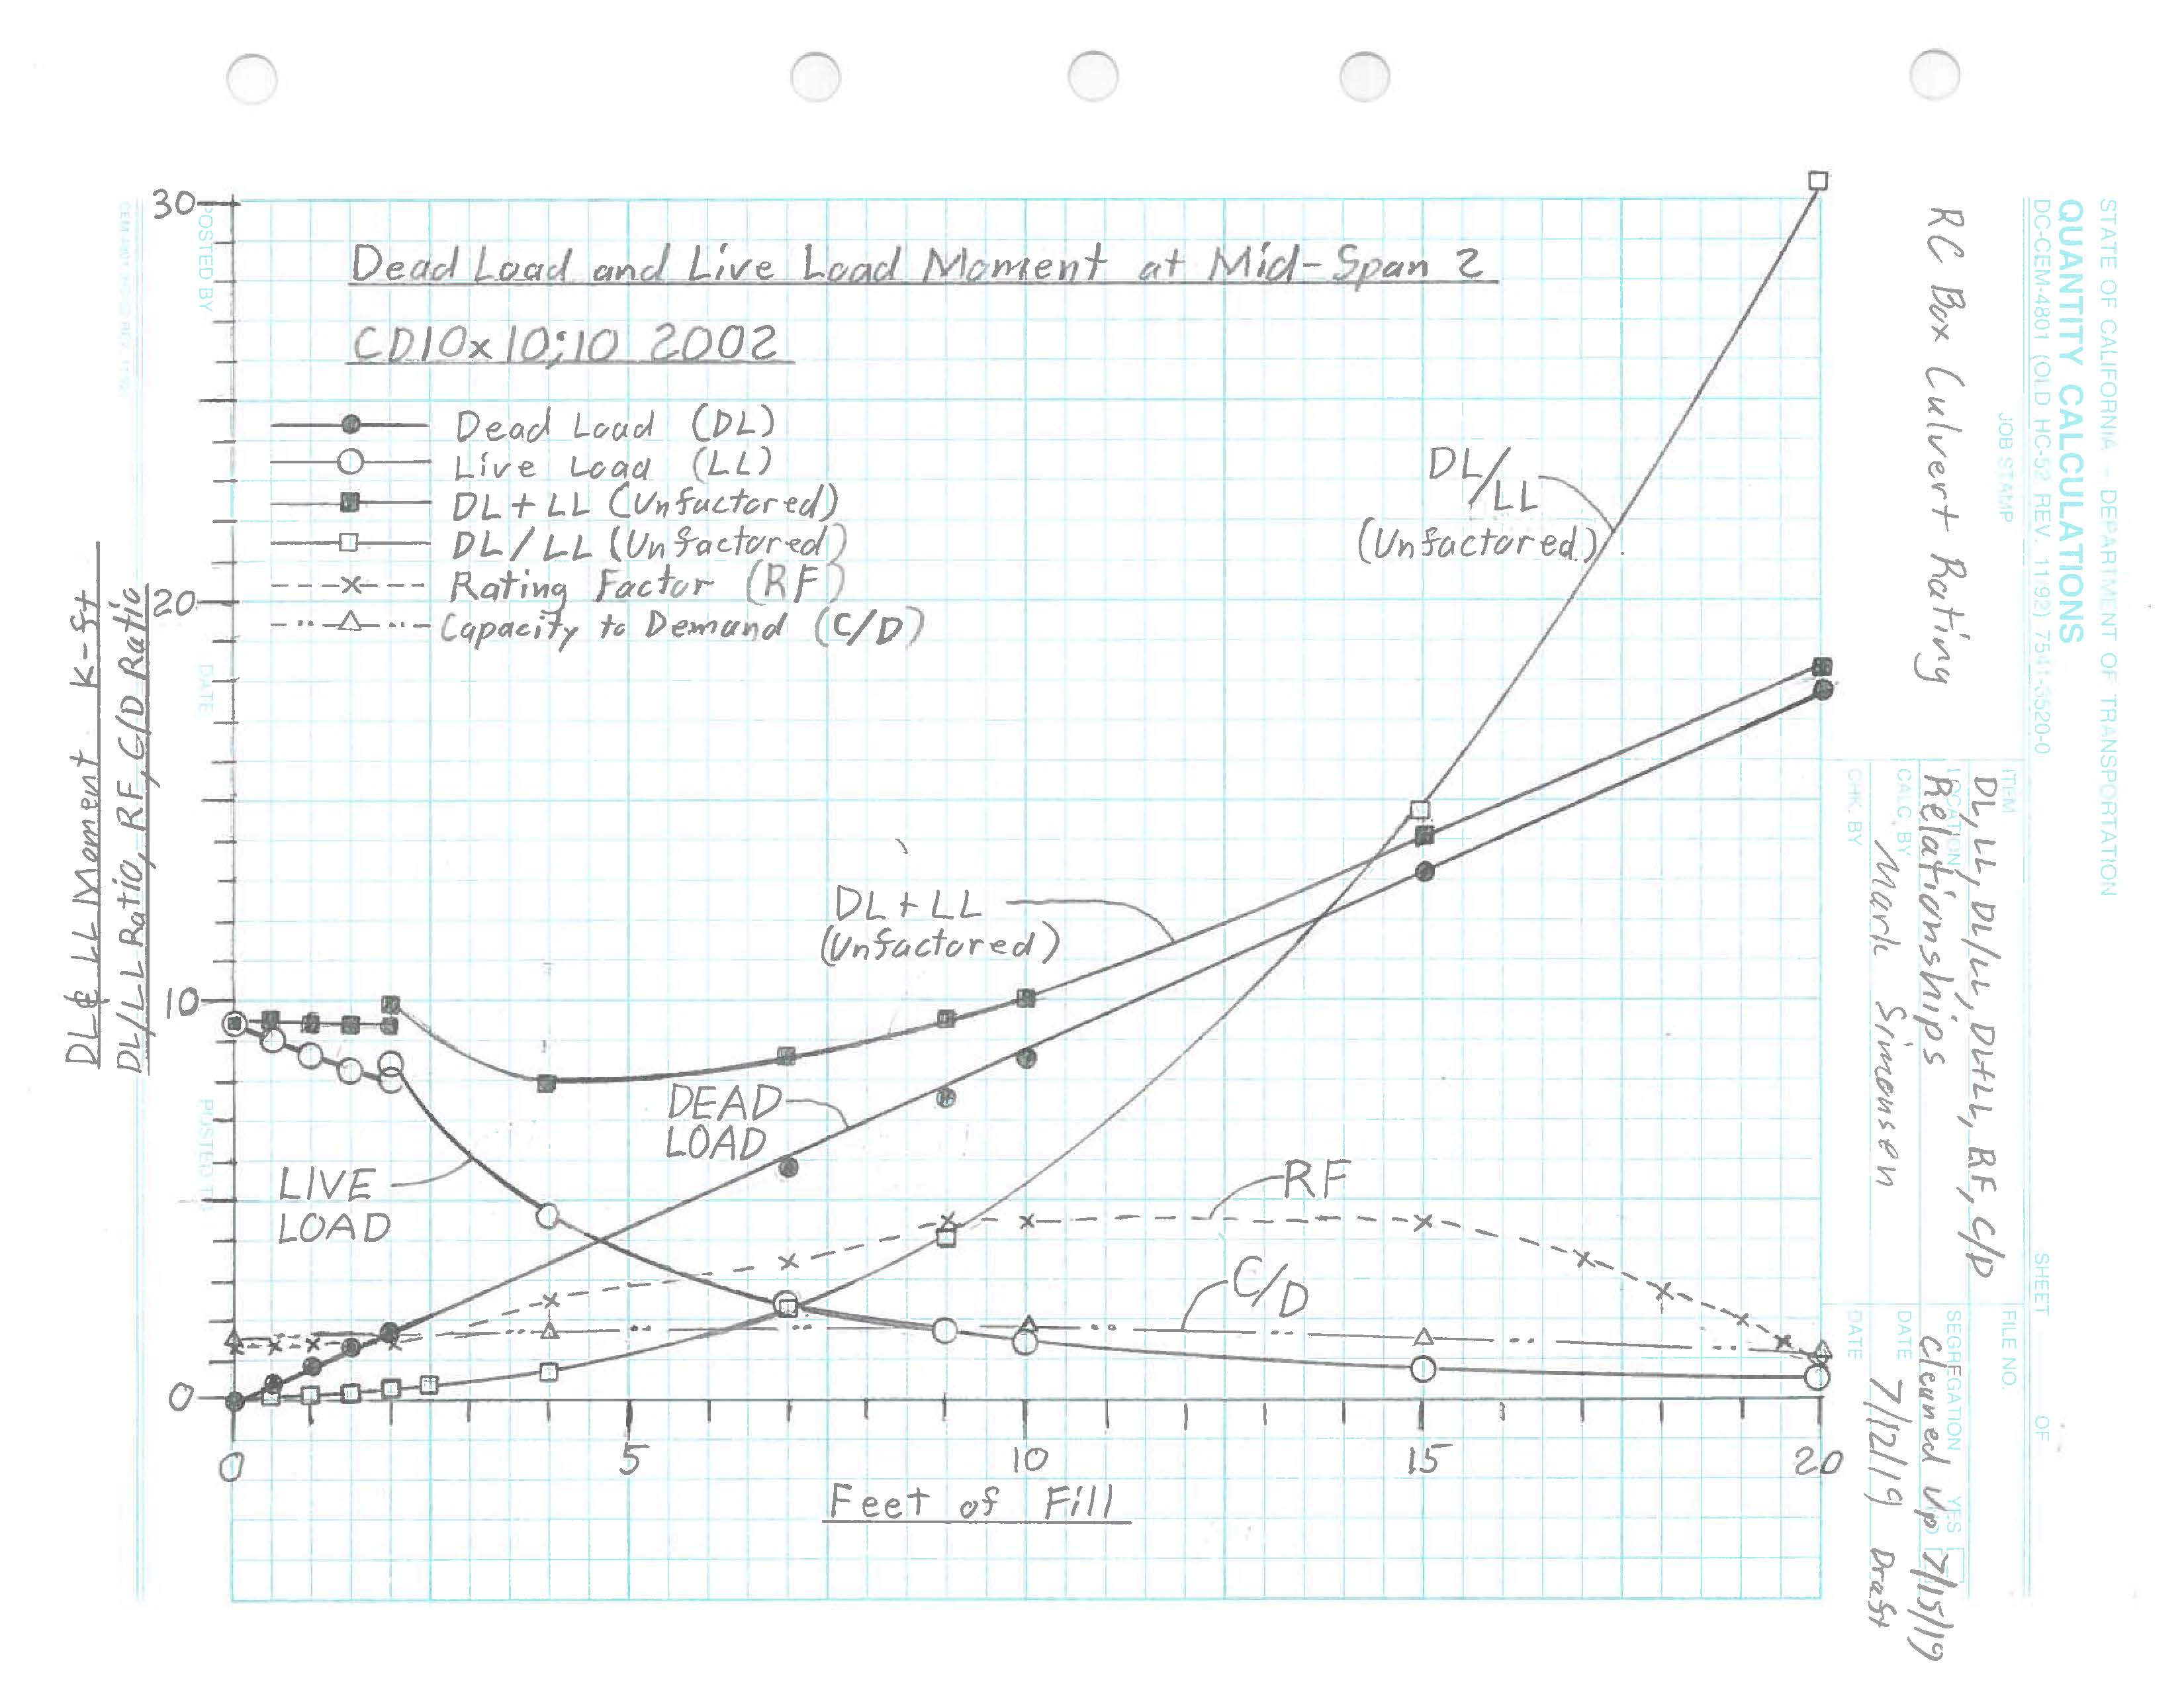 Dead Load and Live Load Moment at Mid-Span 2
CD10x10;10 2002
Dead Load (DL)
Live Load (LL)
DL+LL (Unfactored)
DL/LL (Unfactored)
Rating Factor (RF)
Capacity to Demand (C/D)
DL & LL Moment K-ft
DL/LL Ratio, RF, C/D Ratio
30
20
10
0
DL/LL
(Unfactored)
DL+LL
(Unfactored)
DEAD
LOAD
LIVE
LOAD
RF
C/D
0 5 10 15 20
Feet of Fill
POSTED BY
DATE
POSTED TO
STATE OF CALIFORNIA - DEPARTMENT OF TRANSPORTATION
QUANTITY CALCULATIONS
DC-CEM-4801 (OLD HC-52 REV. 11/92) 7541-3520-0
JOB STAMP
RC Box Culvert Rating
ITEM
DL, LL, DL/LL, DL+LL, RF, C/D
LOCATION
Relationships
CALC. BY
Mark Simonsen
CHK. BY
SHEET OF
FILE NO.
SEGREGATION YES NO
Cleaned Up 7/15/19
DATE
7/12/19 Draft
DATE